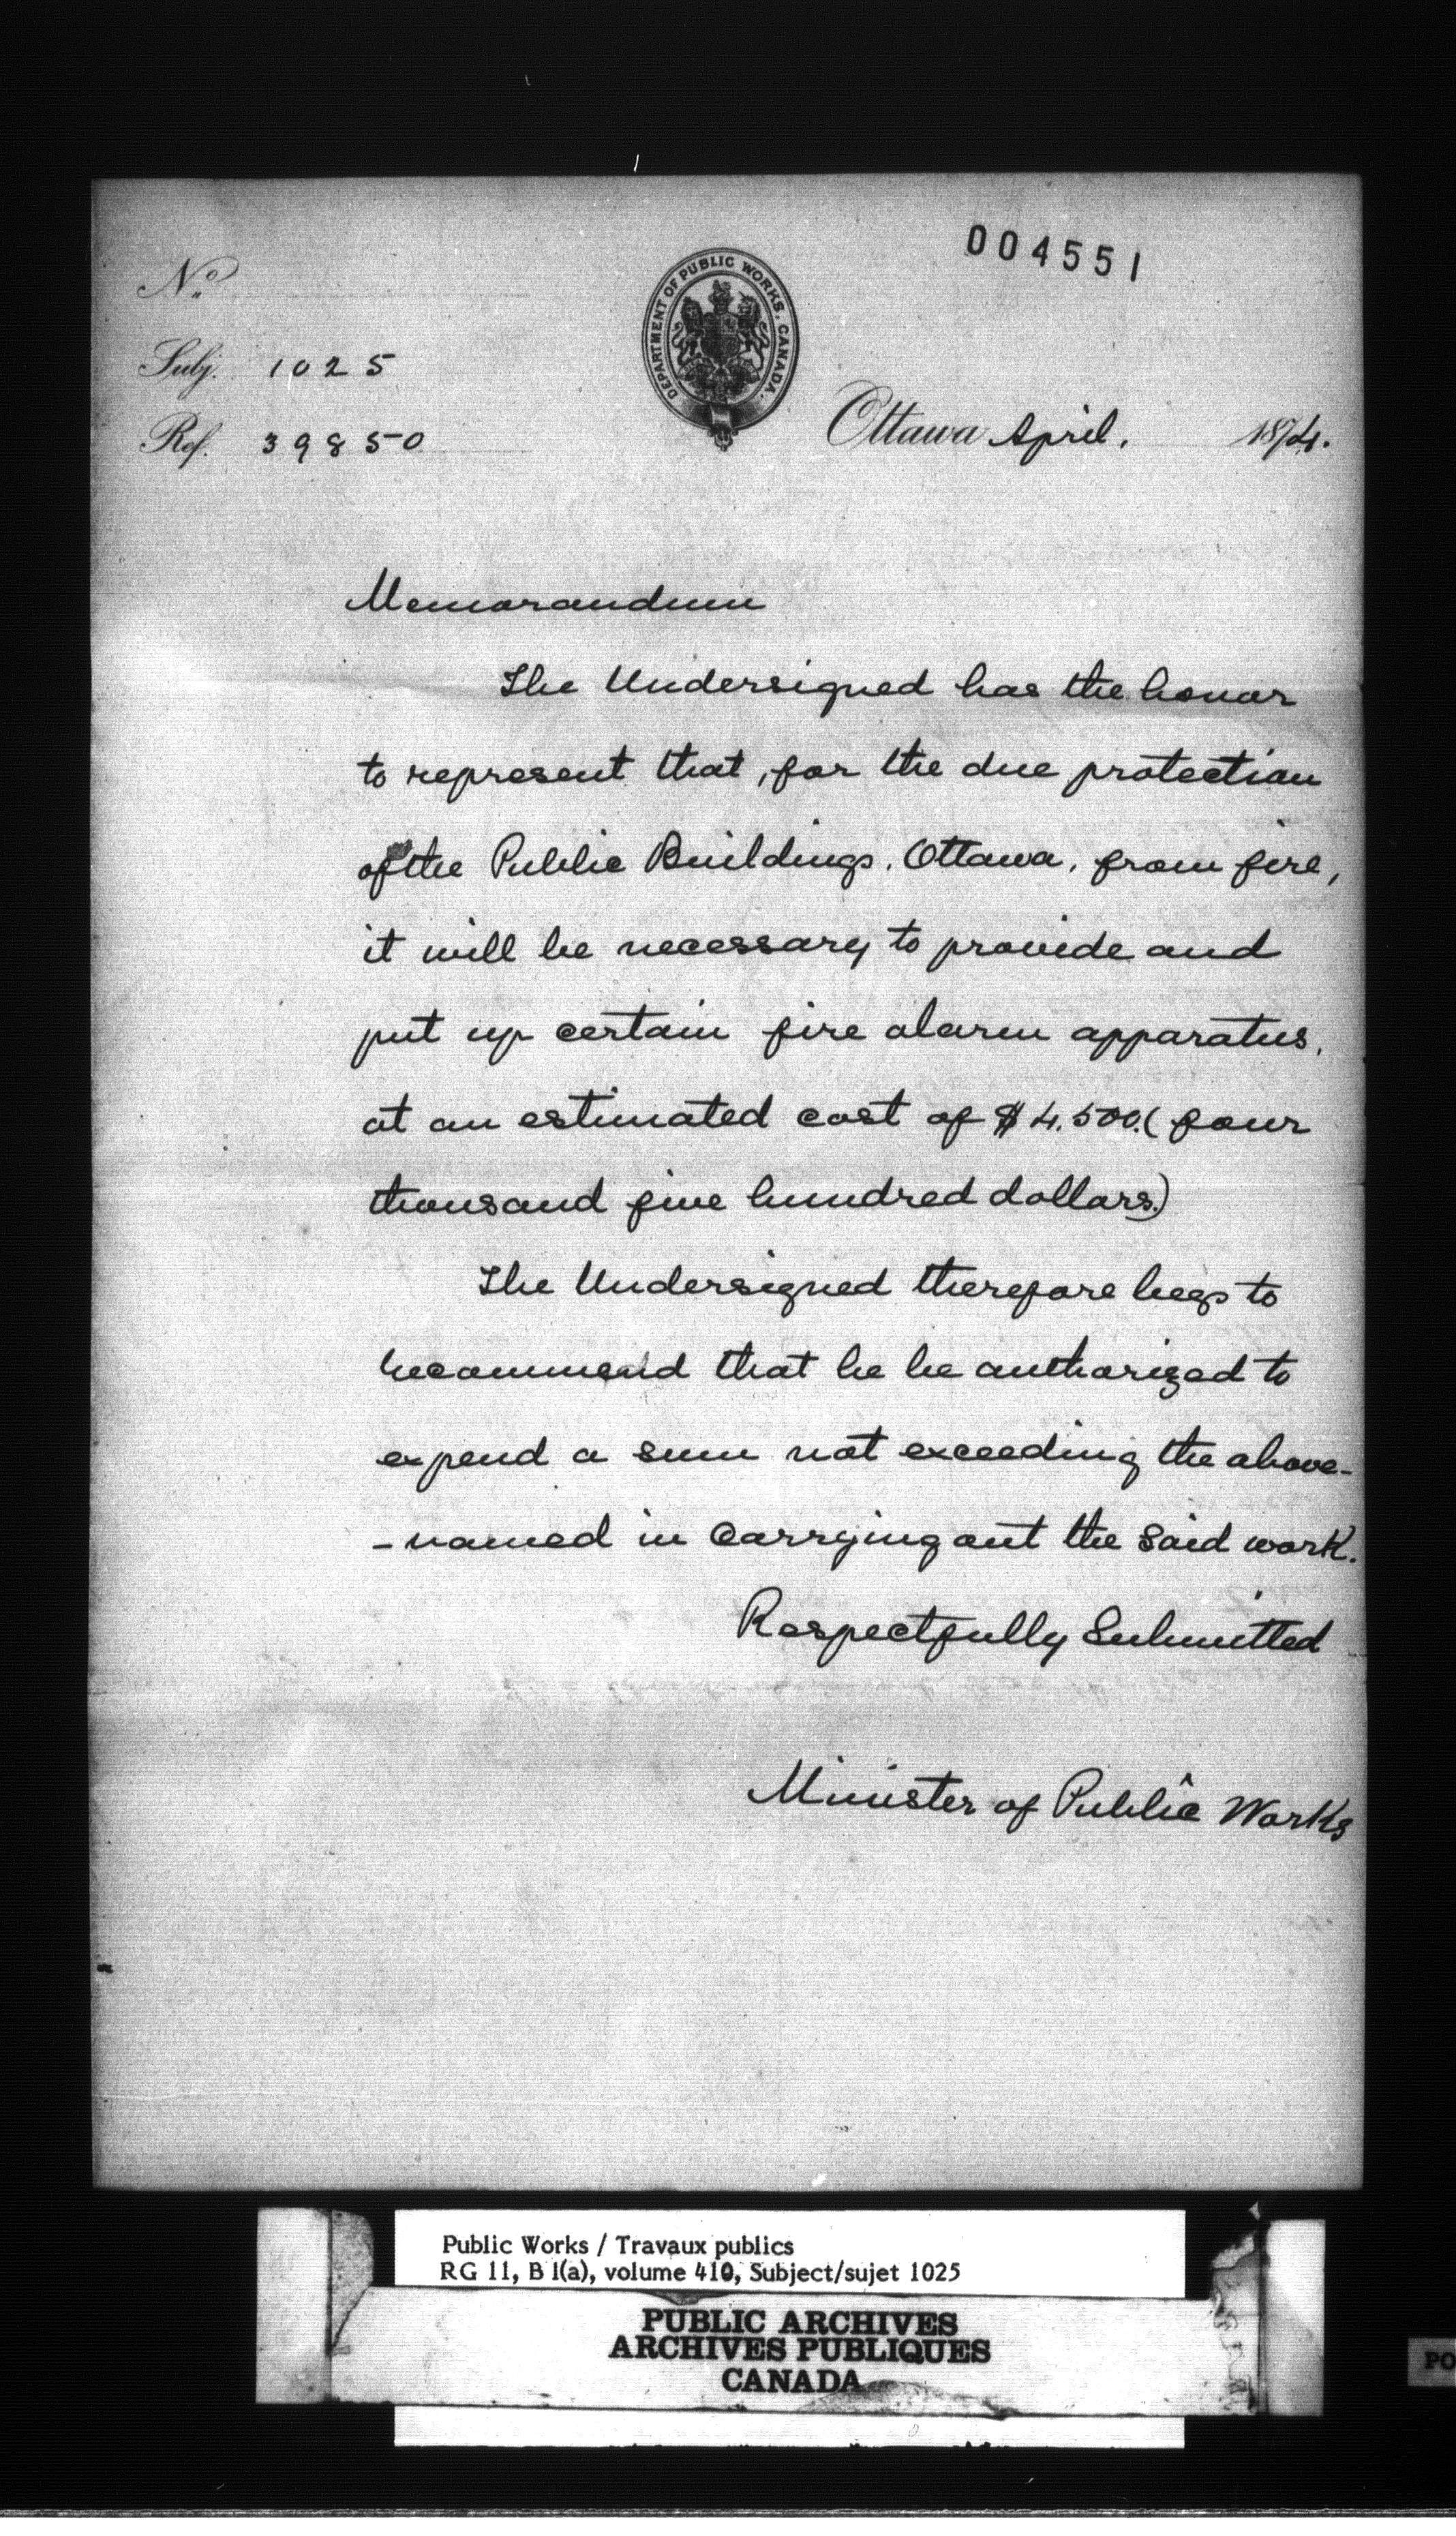 004551
No.
DEPARTMENT OF PUBLIC WORKS, CANADA.
Subj. 1025
Ref. 39850
Ottawa April. 1874.
Memorandum
The Undersigned has the honor
to represent that, for the due protection
of the Public Buildings, Ottawa, from fire,
it will be necessary to provide and
put up certain fire alarm apparatus,
at an estimated cost of $4,500. (four
thousand five hundred dollars.)
The Undersigned therefore begs to
recommend that he be authorized to
expend a sum not exceeding the above-
-named in Carrying out the Said work.
Respectfully Submitted
Minister of Public Works
Public Works / Travaux publics
RG 11, B 1(a), volume 410, Subject/sujet 1025
PUBLIC ARCHIVES
ARCHIVES PUBLIQUES
CANADA
PO